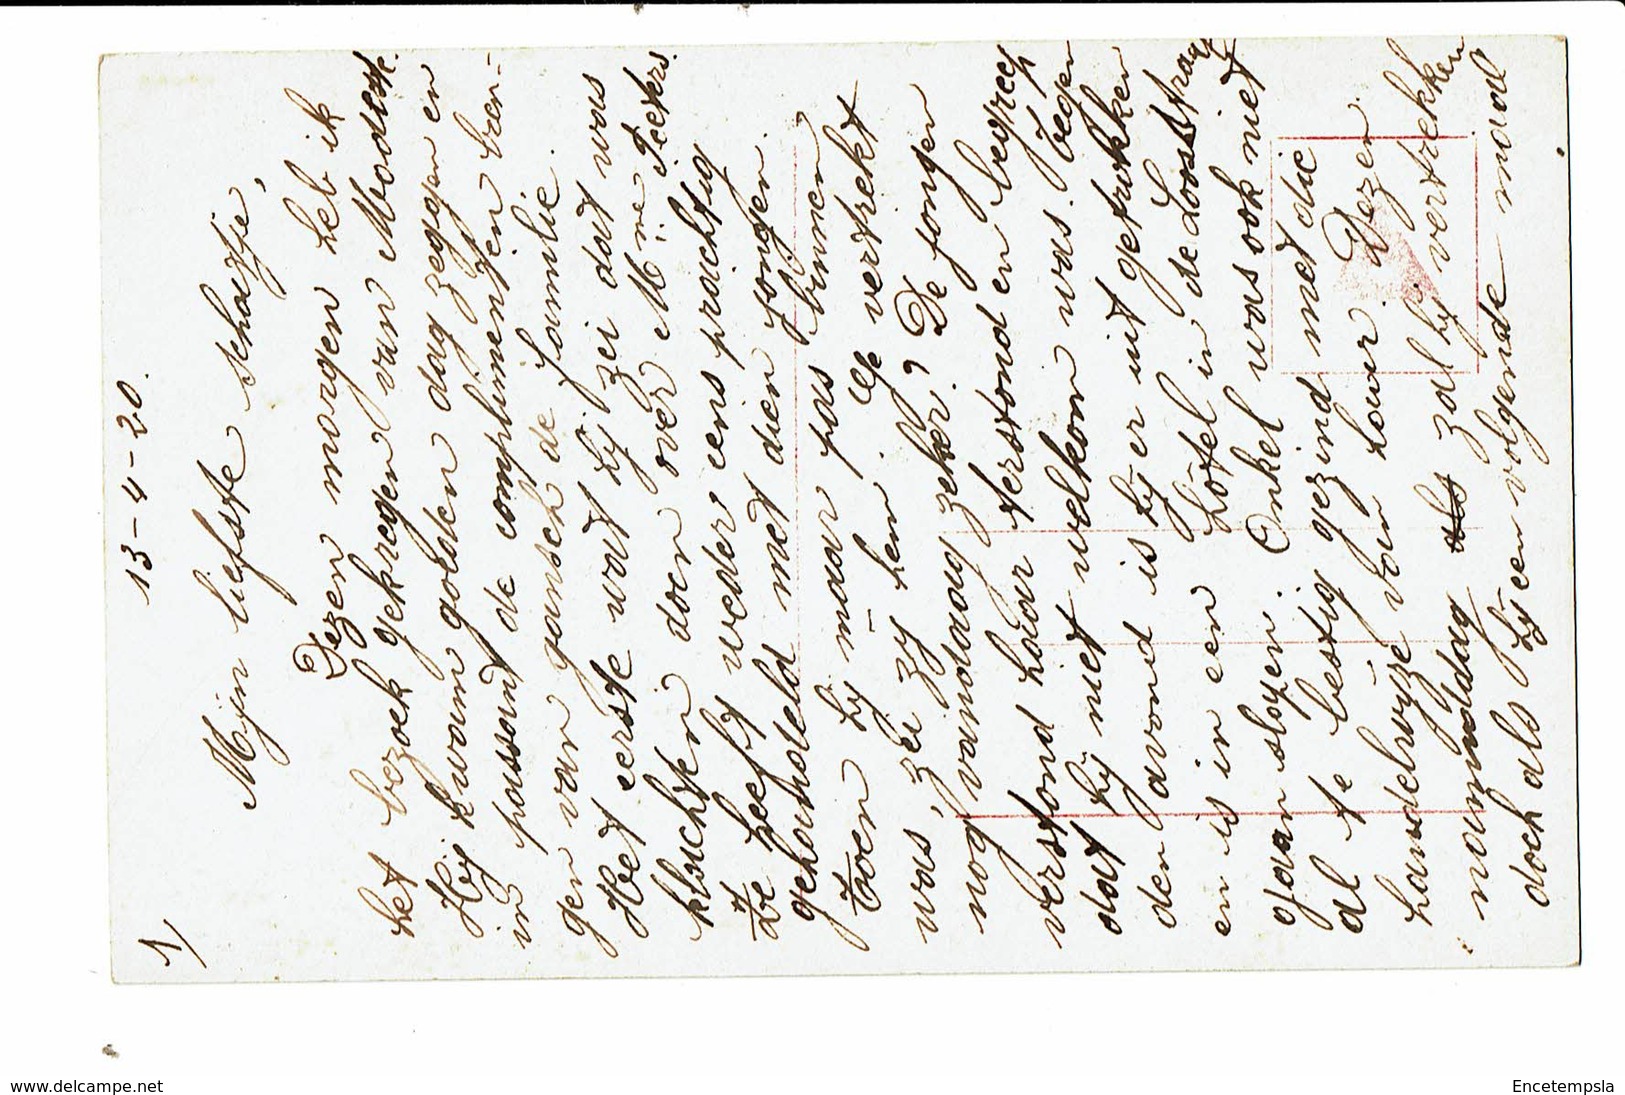 1/
13-4-20.
Mijn liefste schatje,
Dezen morgen heb ik
het bezoek gekregen van Modeste.
Hij kwam goeden dag zeggen en
in passant de complimenten bren-
gen van gansch de familie.
Het eerste wat hij zei dat was
klachten doen over Mme Peeters.
Ze heeft weder eens prachtig
gehandeld met dien jongen.
Toen hij maar pas binnen
was, zei zij hem: "Ge vertrekt
nog vandaag zeker?" De jongen
verstond haar terstond en begreep
dat hij niet welkom was. Tegen
den avond is hij er uit getrokken
en is in een hôtel in de
gaan slapen. Onkel was ook niet
al te bestig gezind met die
handelwijze van haar. Dezen
namiddag zal hij vertrekken
doch als hij een volgende maal
www.delcampe.net
Encetempsla